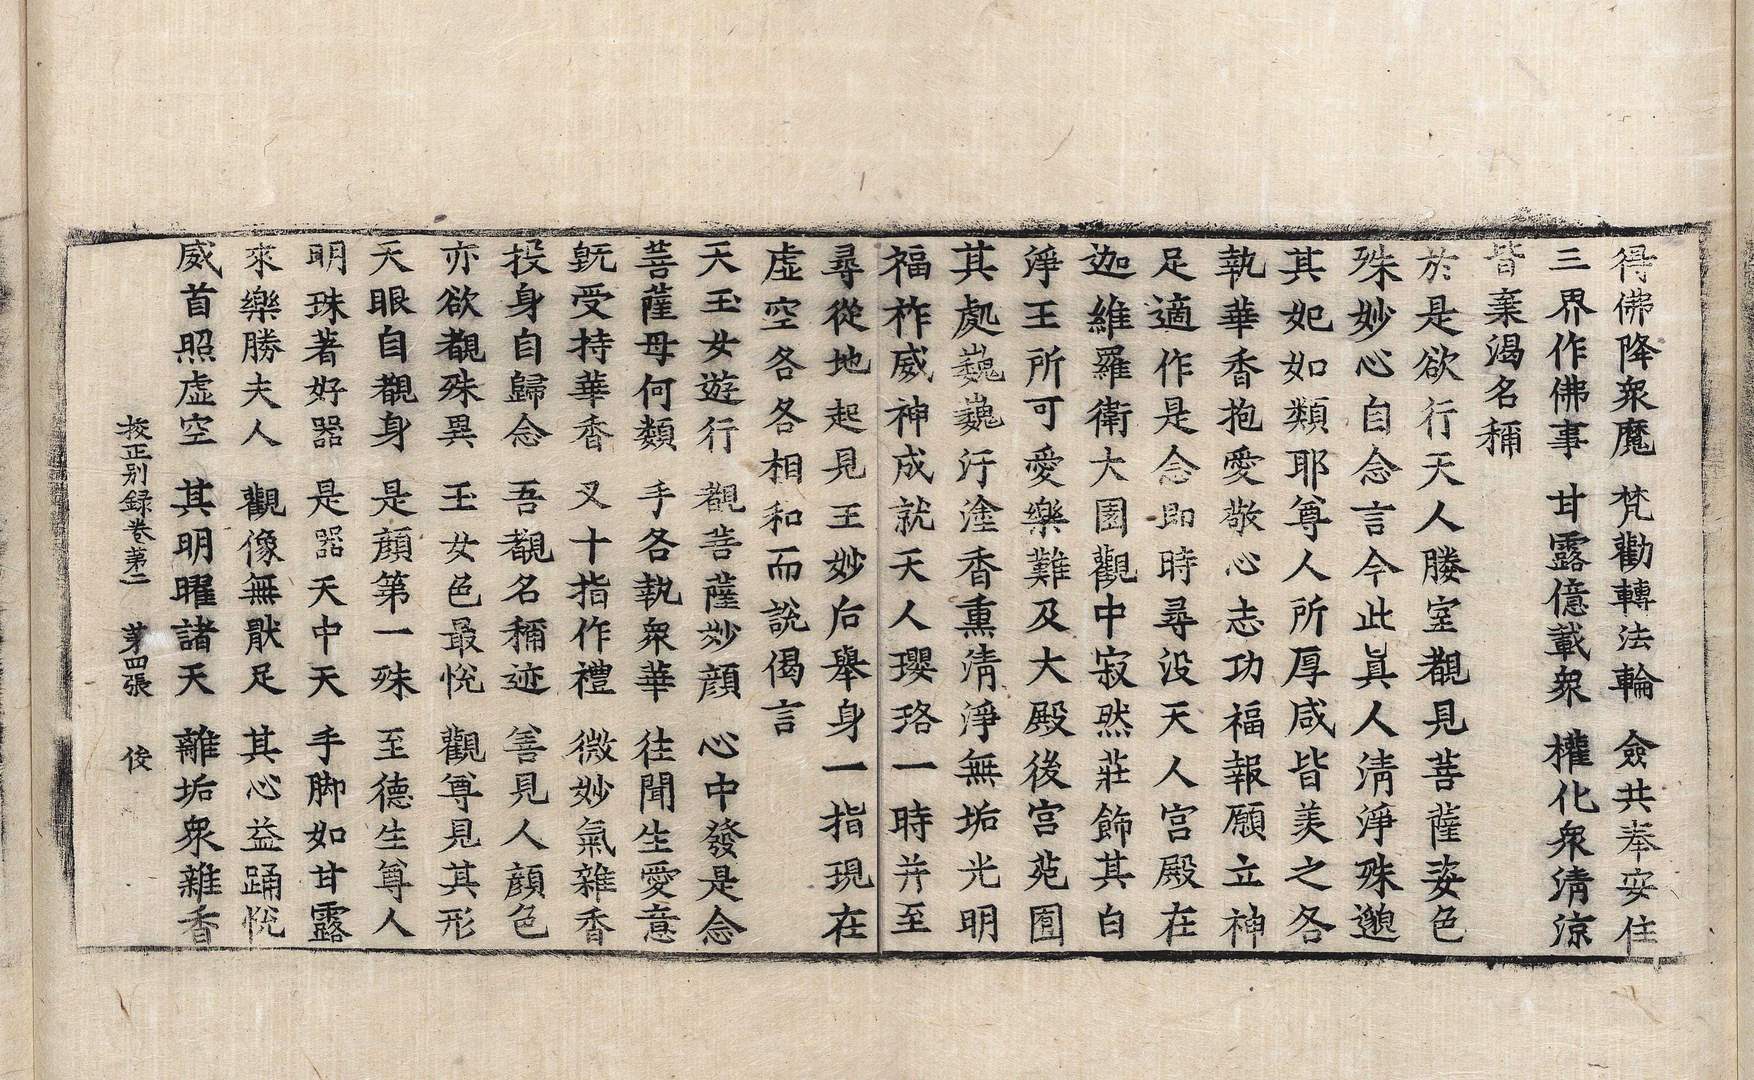 得佛降衆魔 梵勸轉法輪 僉共奉安住
三界作佛事 甘露億載衆 權化衆清涼
皆棄渴名稱
於是欲行天人勝室覩見菩薩姿色
殊妙心自念言今此眞人清淨殊邈
其妃如類耶尊人所厚咸皆美之各
執華香抱愛敬心志功福報願立神
足適作是念即時尋没天人宮殿在
迦維羅衛大園觀中寂然莊飾其白
淨王所可愛樂難及大殿後宮苑園
其處巍巍汙塗香熏清淨無垢光明
福祚威神成就天人瓔珞一時并至
尋從地起見王妙后舉身一指現在
虛空各各相和而說偈言
天玉女遊行 觀菩薩妙顔 心中發是念
菩薩母何類 手各執衆華 往聞生愛意
旣受持華香 叉十指作禮 微妙氣雜香
投身自歸念 吾覩名稱迹 善見人顔色
亦欲覩殊異 玉女色最悅 觀尊見其形
天眼自覩身 是顔第一殊 至德生尊人
明珠著好器 是器天中天 手脚如甘露
來樂勝夫人 觀像無猒足 其心益踊悅
威首照虛空 其明曜諸天 離垢衆雜香
校正别録卷第二 第四張 俊